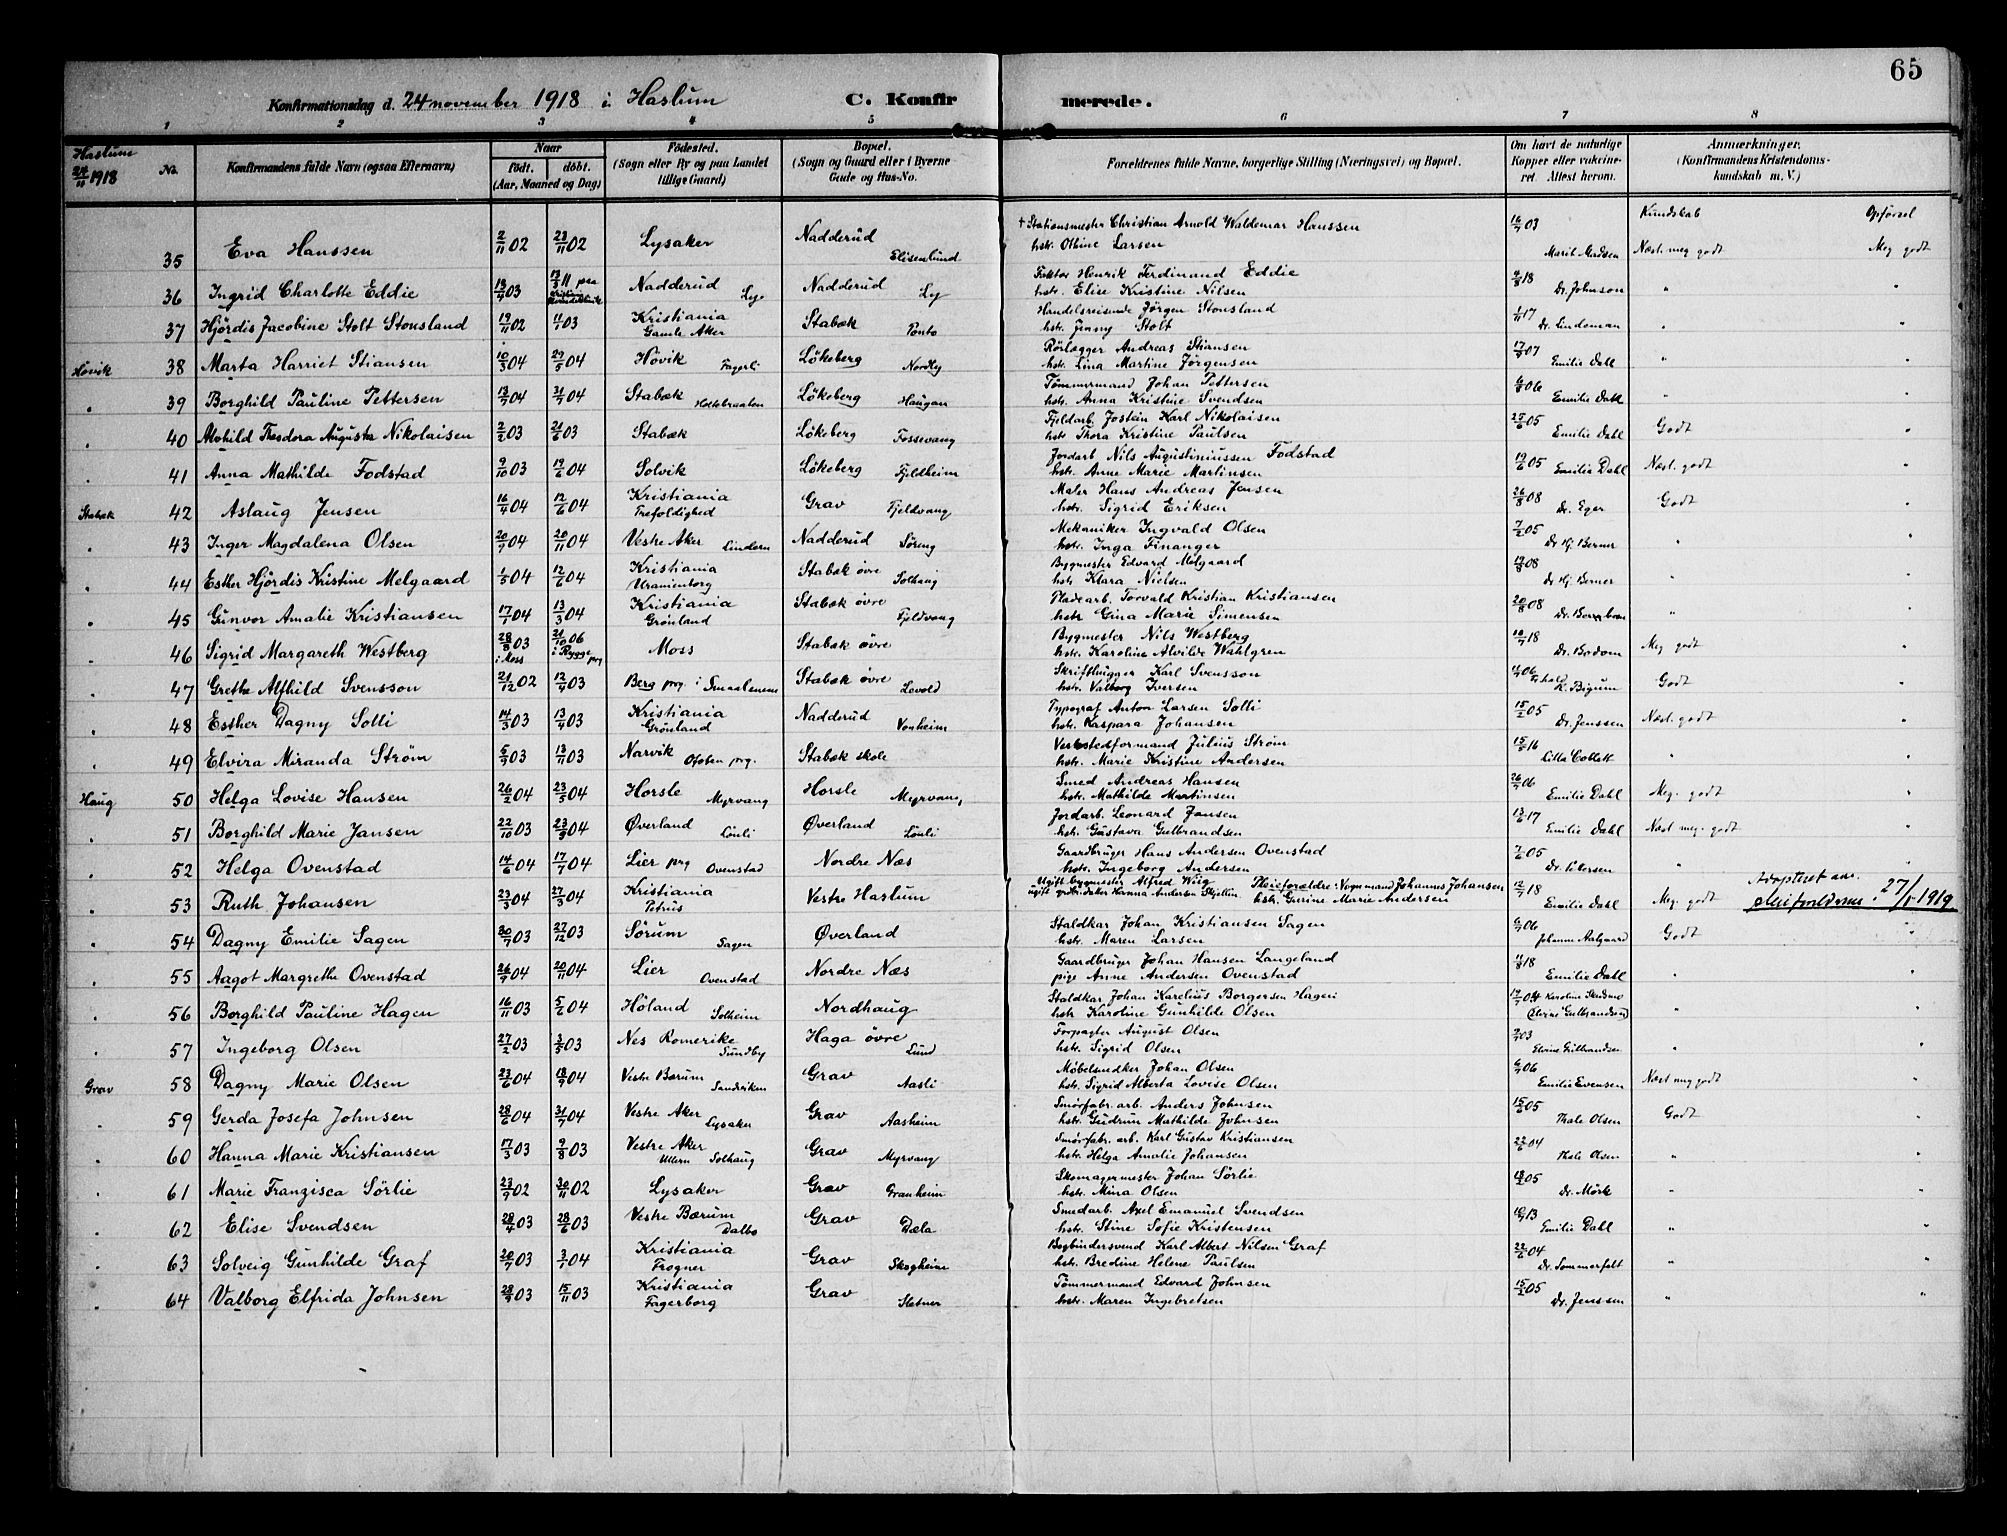 65
Konfirmationsdag d. 24 november 1918 i Haslum C. Konfirmerede.
1 2 3 4 5 6 7 8
Haslum 24/11 1918
No.
Konfirmandens fulde Navn (ogsaa Efternavn)
Naar
født. døbt.
(Aar, Maaned og Dag)
Fødested.
(Sogn eller By og paa Landet
tillige Gaard)
Bopæl.
(Sogn og Gaard eller i Byerne
Gade og Hus-No.
Forældrenes fulde Navne, borgerlige Stilling (Næringsvei) og Bopæl.
Om havt de naturlige
Kopper eller vaccine-
ret. Attest herom.
Anmerkninger.
(Konfirmandens Kristendoms-
kundskab m. V.)
Kundskab Opførsel
35 Eva Hanssen 2/11 02 23/11 02 Lysaker Nadderud Elisenlund † Stationsmester Christian Arnold Waldemar Hanssen hstr. Oline Larsen 16/7 03 Marit Madsen Næst. meg godt Meg godt
36 Ingrid Charlotte Eddie 13/4 03 Nadderud Ly Nadderud Ly Faktor Henrik Ferdinand Eddie hstr. Elise Kristine Nilsen 9/8 18 Dr. Johnson " "
37 Hjördis Jacobine Stolt Stousland 19/11 02 11/1 03 Kristiania Gamle Aker Stabæk Ponto Handelsreisende Jørgen Stousland hstr. Jenny Stolt 1/11 17 Dr. Lindeman " "
Høvik 38 Marta Harriet Stiansen 10/3 04 29/5 04 Høvik Fagerli Lökeberg Nordly Rörlægger Andreas Stiansen hstr. Lina Martine Jørgensen 17/9 07 Emilie Dahl " "
" 39 Borghild Pauline Pettersen 13/7 04 31/7 04 Stabæk Holtebraaten Lökeberg Haugan Tømmermand Johan Pettersen hstr. Anna Kristine Svendsen 6/8 06 Emilie Dahl " "
" 40 Alvhild Theodora Augusta Nikolaisen 2/2 03 21/6 03 Stabæk Lökeberg Fossevang Fjeldarb. Jostein Karl Nikolaisen hstr Thora Kristine Paulsen 25/6 05 Emilie Dahl Godt "
" 41 Anna Mathilde Fodstad 9/10 03 19/6 04 Solvik Lökeberg Fjeldheim Jordarb. Nils Augustiniussen Fodstad hstr. Anne Marie Martinsen 19/6 05 Emilie Dahl Næst. godt "
Stabæk 42 Aslaug Jensen 16/4 04 12/6 04 Kristiania Trefoldighed Grav Fjeldvang Maler Hans Andreas Jensen hstr. Sigrid Eriksen 26/8 08 Dr. Eger Godt "
" 43 Inger Magdalena Olsen 20/9 04 20/11 04 Vestre Aker Lindern Nadderud Søreng Mekaniker Ingvald Olsen hstr. Inga Finanger 7/2 05 Dr. Hj. Berner " "
" 44 Esther Hjördis Kristine Melgaard 1/5 04 12/6 04 Kristiania Uranienborg Stabæk övre Solhaug Bygmester Edvard Melgaard hstr Klara Nielsen 19/8 08 Dr Hj. Berner " "
" 45 Gunvor Amalie Kristiansen 17/1 04 13/3 04 Kristiania Grönland Stabæk övre Fjeldvang Pladearb. Torvald Kristian Kristiansen hstr Gina Marie Simensen 20/8 08 " "
" 46 Sigrid Margareth Westberg 28/8 03 i Moss 21/10 06 i Rygge prg Moss Stabæk övre Bygmester Nils Westberg hstr. Karoline Alvilde Wahlgren 10/7 18 Dr. Bodom Meg godt "
" 47 Grethe Alfhild Svensson 21/12 02 12/4 03 Berg prg i Smaalenene Stabæk övre Lovold Skrifthugger Karl Svensson hstr. Valborg Iversen K. Bigum Godt "
" 48 Esther Dagny Solli 14/3 03 13/4 03 Kristiania Grönland Nadderud Vonheim Typograf Anton Larsen Solli hstr. Kaspara Johansen 15/2 05 Dr. Jenssen Næst. godt "
" 49 Elvira Miranda Strøm 5/9 03 13/11 03 Narvik Ofoten prg. Stabæk skole Verkstedformand Julius Strøm hstr. Marie Kristine Andersen 15/5 16 Lilla Collett " "
Haug 50 Helga Lovise Hansen 26/2 04 23/5 04 Horsle Myrvang Horsle Myrvang Smed Andreas Hansen hstr. Mathilde Martinsen 26/9 06 Emilie Dahl Meg. godt "
" 51 Borghild Marie Jansen 22/10 03 23/3 04 Øverland Lönli Øverland Lönli Jordarb. Leonard Jansen hstr. Gustava Gulbrandsen 13/6 17 Emilie Dahl Næst meg. godt "
" 52 Helga Ovenstad 14/6 04 17/7 04 Lier prg Ovenstad Nordre Næs Gaardbruger Hans Andersen Ovenstad hstr. Ingeborg Andersen 7/6 05 " "
" 53 Ruth Johansen 23/3 04 27/3 04 Kristiania Petrus Vestre Haslum Ugift bygmester Alfred Wiig Pleieforældre: Vognmand Johannes Johansen hstr. Gurine Marie Andersen 12/7 18 Emilie Dahl Meg. godt Adopteret av pleieforældrene 27/1 1919
" 54 Dagny Emilie Sagen 30/7 03 27/12 03 Sörum Sagen Øverland Staldkar Johan Kristiansen Sagen hstr. Maren Larsen 6/9 06 Johanne Aalgaard Godt "
" 55 Aagot Margrethe Ovenstad 26/9 04 20/11 04 Lier Ovenstad Nordre Næs Gaardbruger Johan Hansen Langeland pige Anne Andersen Ovenstad 11/8 18 Emilie Dahl " "
" 56 Borghild Pauline Hagen 16/11 03 5/6 04 Höland Solheim Nordhaug Staldkar Johan Karelius Borgersen Hagen hstr Karoline Gunhilde Olsen 19/7 04 " "
" 57 Ingeborg Olsen 27/2 03 3/5 03 Nes Romerike Sundby Haga övre Lund Forpagter August Olsen hstr. Sigrid Olsen Elvine Gulbrandsen " "
Grav 58 Dagny Marie Olsen 23/6 04 18/9 04 Vestre Bærum Sandviken Grav Aasli Møbelsnedker Johan Olsen hstr. Sigrid Alberta Lovise Olsen 6/9 06 Emilie Evensen Næst meg godt "
" 59 Gerda Josefa Johnsen 28/6 04 31/7 04 Vestre Aker Lysaker Grav Aasheim Smörfabr. arb. Anders Johnsen hstr. Gudrun Mathilde Johnsen 15/6 05 Thale Olsen Godt "
" 60 Hanna Marie Kristiansen 17/3 03 9/8 03 Vestre Aker Ullern Solhaug Grav Myrvang Smörfabr. arb. Karl Gustav Kristiansen hstr. Helga Amalie Johansen 22/6 04 Thale Olsen " "
" 61 Marie Franzisca Sörlie 23/9 02 30/11 02 Lysaker Grav Granheim Skomagermester Johan Sörlie hstr. Mina Olsen 18/2 05 Dr. Mörk " "
" 62 Elise Svendsen 28/4 03 28/6 03 Vestre Bærum Dalbo Grav Dæla Smedarb. Axel Emanuel Svendsen hstr. Stine Sofie Kristensen 10/9 13 Emilie Dahl " "
" 63 Solveig Gunhilde Graf 20/9 03 3/1 04 Kristiania Frogner Grav Skogheim Bogbindersvend Karl Albert Nilsen Graf hstr. Bredine Helene Paulsen 22/6 04 Dr. Sommerfelt " "
" 64 Valborg Elfrida Johnsen 28/9 03 15/11 03 Kristiania Fagerborg Grav Sletner Tömmermand Edvard Johnsen hstr. Maren Ingebretsen 15/2 05 Dr. Jenssen " "